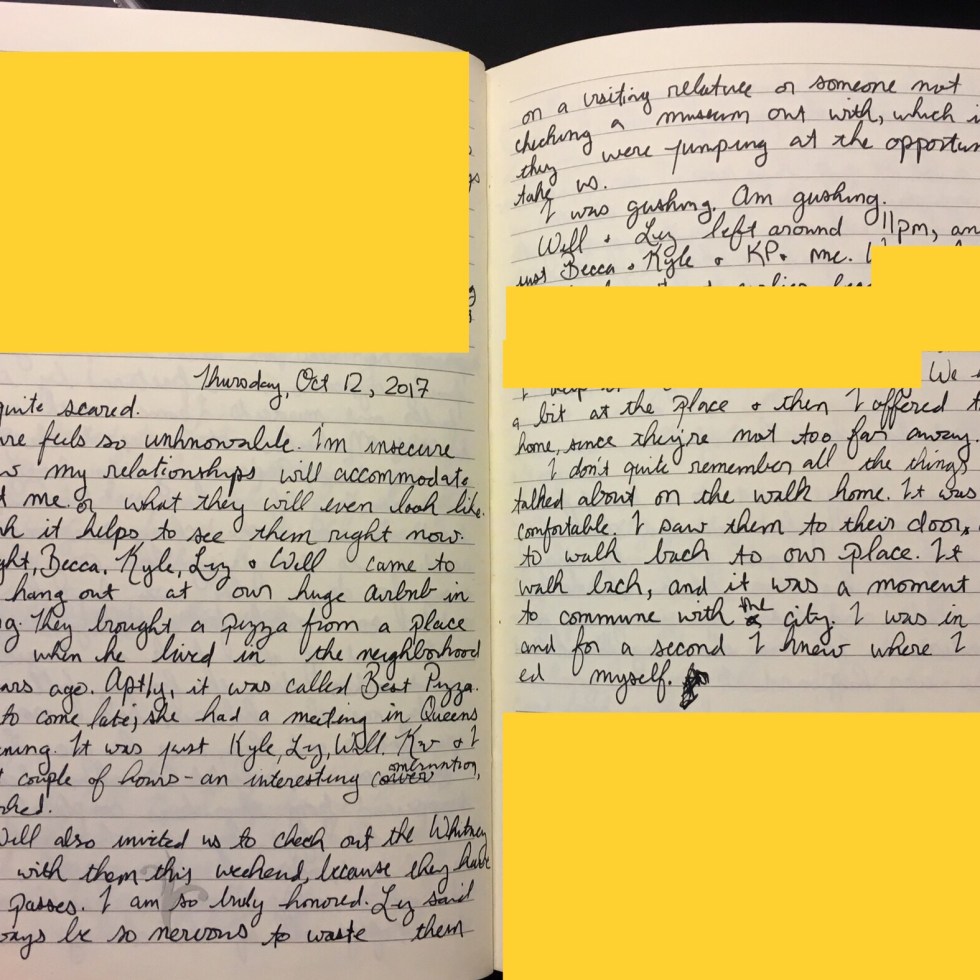 Thursday, Oct 12, 2017
quite scared.
feels so unknowable. I'm insecure
my relationships will accommodate
me or what they will even look like.
it helps to see them right now.
Becca, Kyle, Lyz & Will came to
hang out at our huge airbnb in
They brought a pizza from a place
when he lived in the neighborhood
ago. Aptly, it was called Best Pizza.
to come late; she had a meeting in Queens
It was just Kyle, Lyz, Will, KP & I
couple of hours - an interesting conversation,
Will also invited us to check out the Whitney
with them this weekend, because they have
passes. I am so truly honored. Lyz said
be so nervous to waste them
on a visiting relative or someone not
checking a museum out with, which
they were jumping at the
take us.
I was gushing. Am gushing.
Will & Lyz left around 11pm,
just Becca & Kyle & KP & me.
We
a bit at the place & then I offered
home, since they're not too far away.
I don't quite remember all the things
talked about on the walk home. It was
comfortable. I saw them to their door,
to walk back to our place. It
walk back, and it was a moment
to commune with the city. I was in
and for a second I knew where I
ed myself.